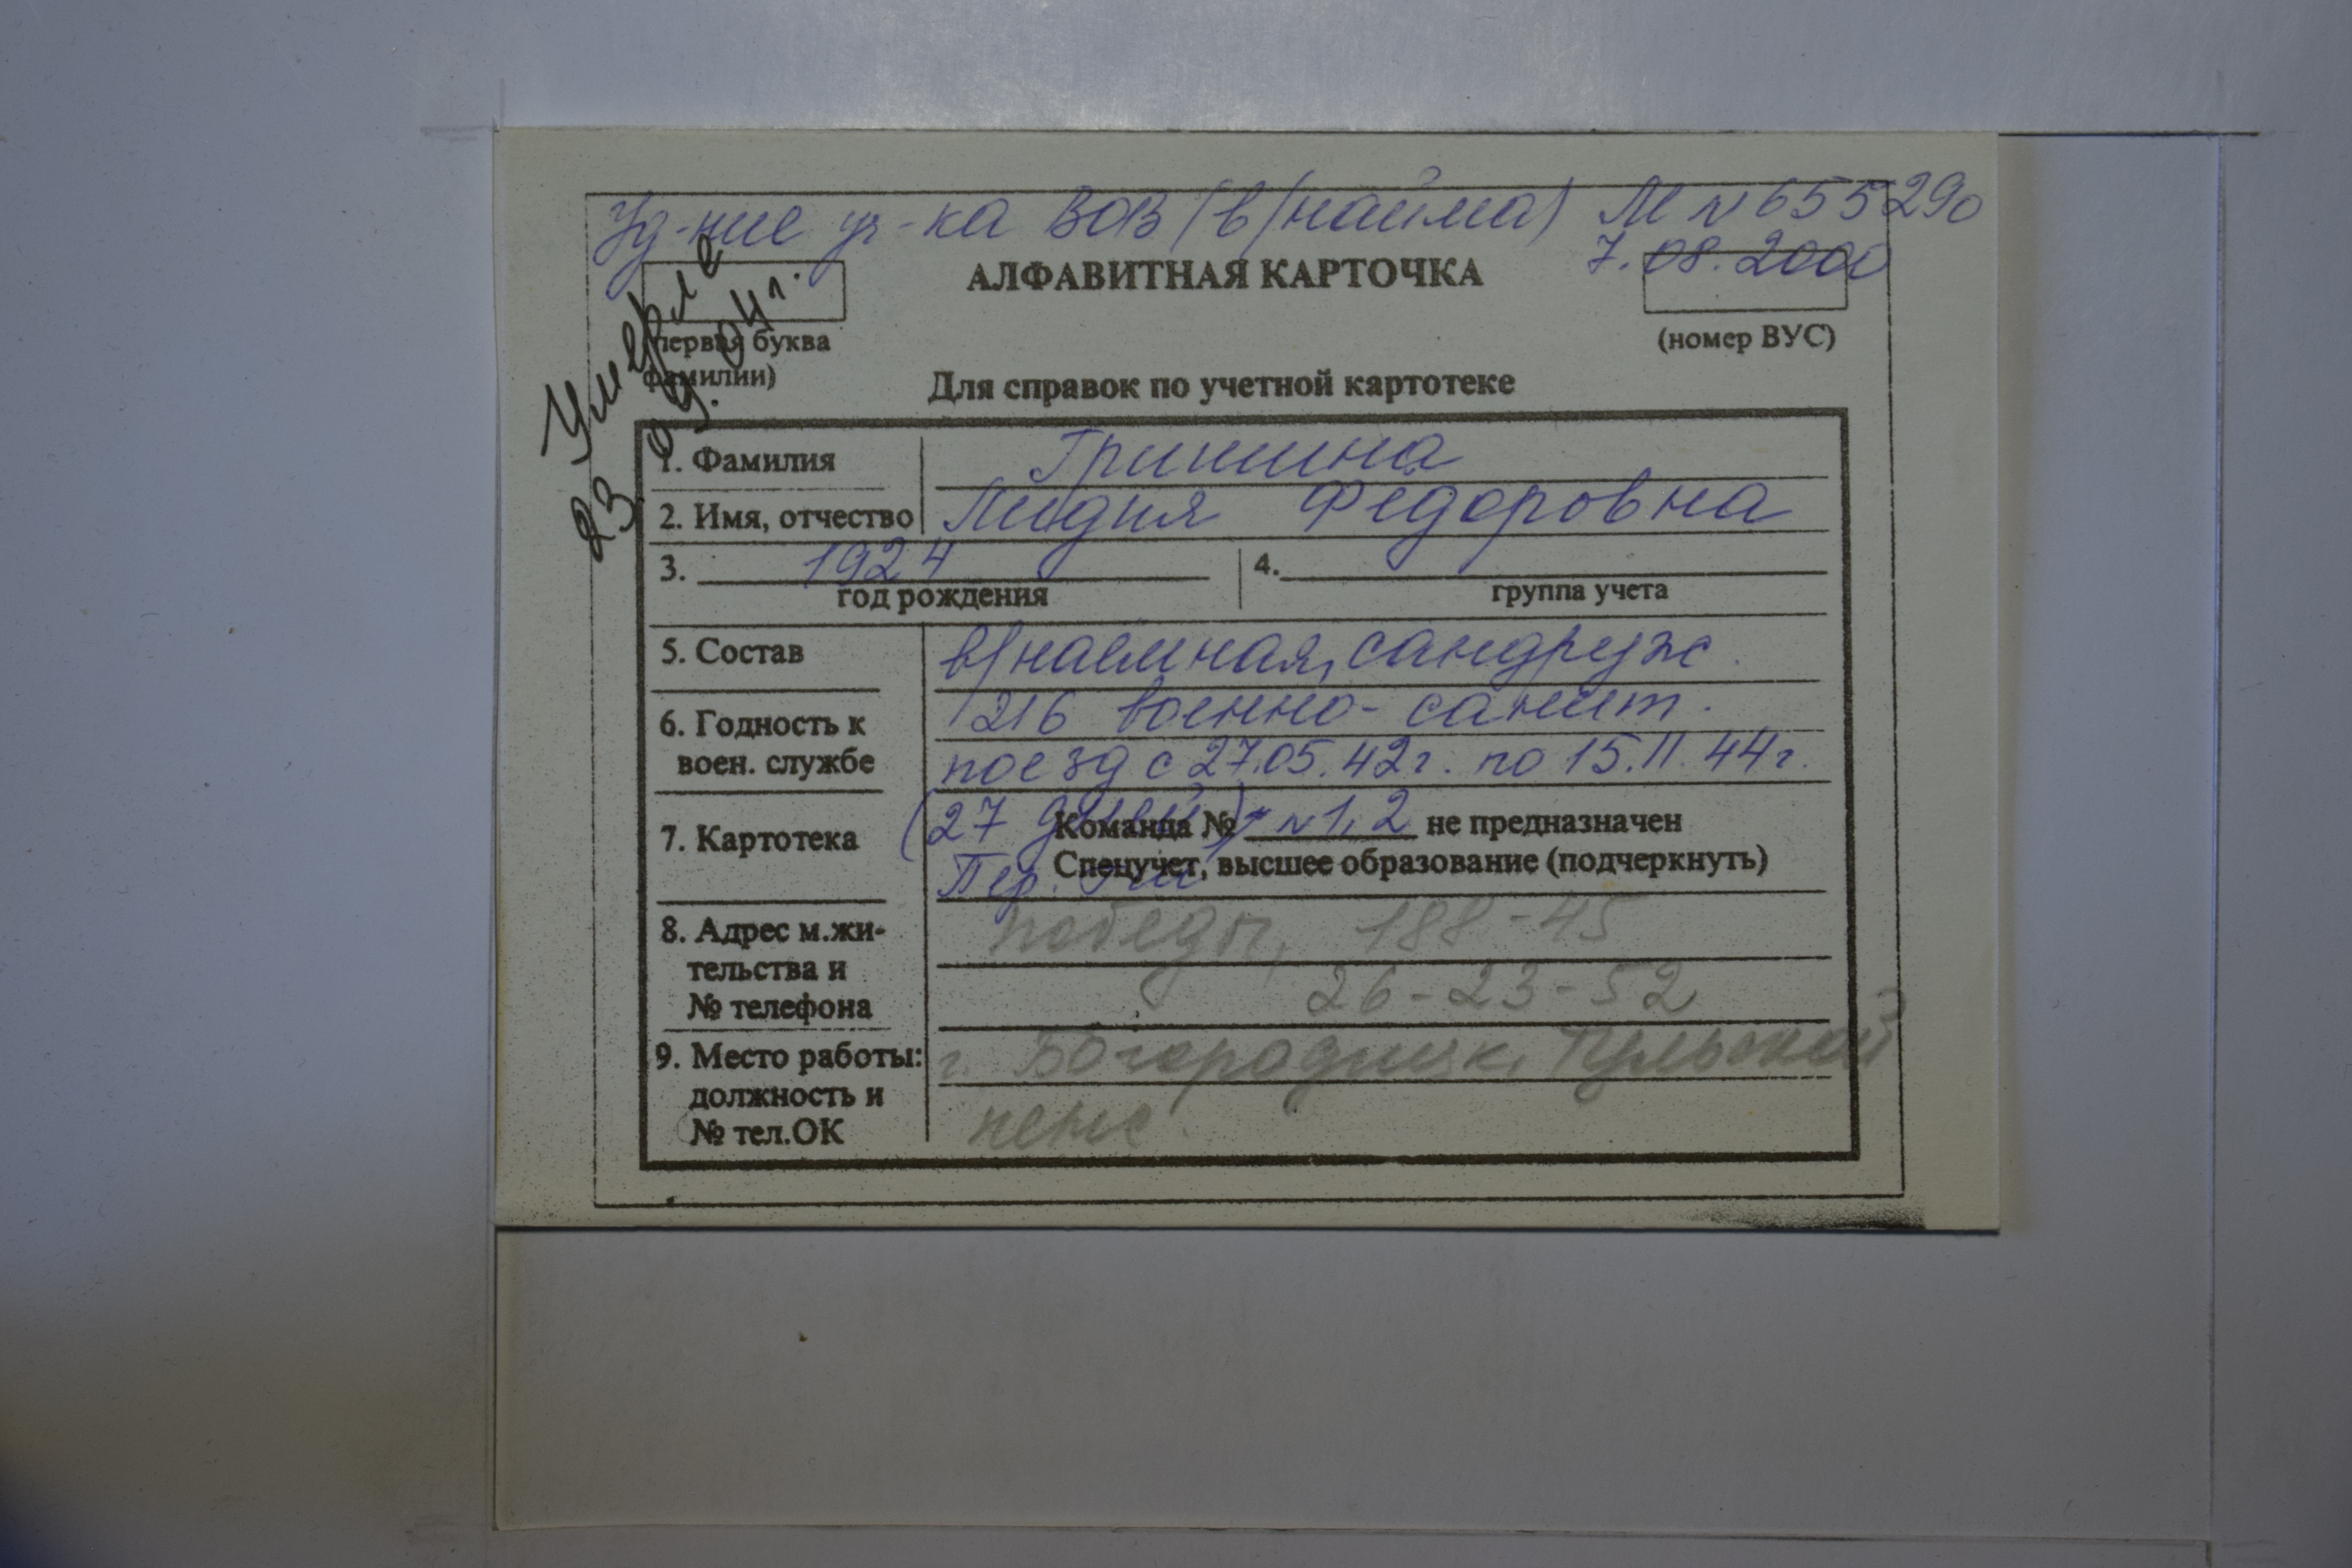 Уд-ние уч-ка ВОВ (в/найма) М № 655290
7.08.2000
Умерла
23.04.04г.
АЛФАВИТНАЯ КАРТОЧКА
первая буква
фамилии)
(номер ВУС)
Для справок по учетной картотеке
1. Фамилия Гришина
2. Имя, отчество Лидия Федоровна
3. 1924
год рождения
4.
группа учета
5. Состав в/наемная, сандруж.
6. Годность к
воен. службе
216 военно-санит.
поезд с 27.05.42г. по 15.11.44г.
7. Картотека
(27 дней) № 1,2
Команда № не предназначен
Спецучет, высшее образование (подчеркнуть)
Пер.
8. Адрес м.жи-
тельства и
№ телефона
Победы, 188-45
26-23-52
9. Место работы:
должность и
№ тел.ОК
г. Богородицк, Тульской
пенс.